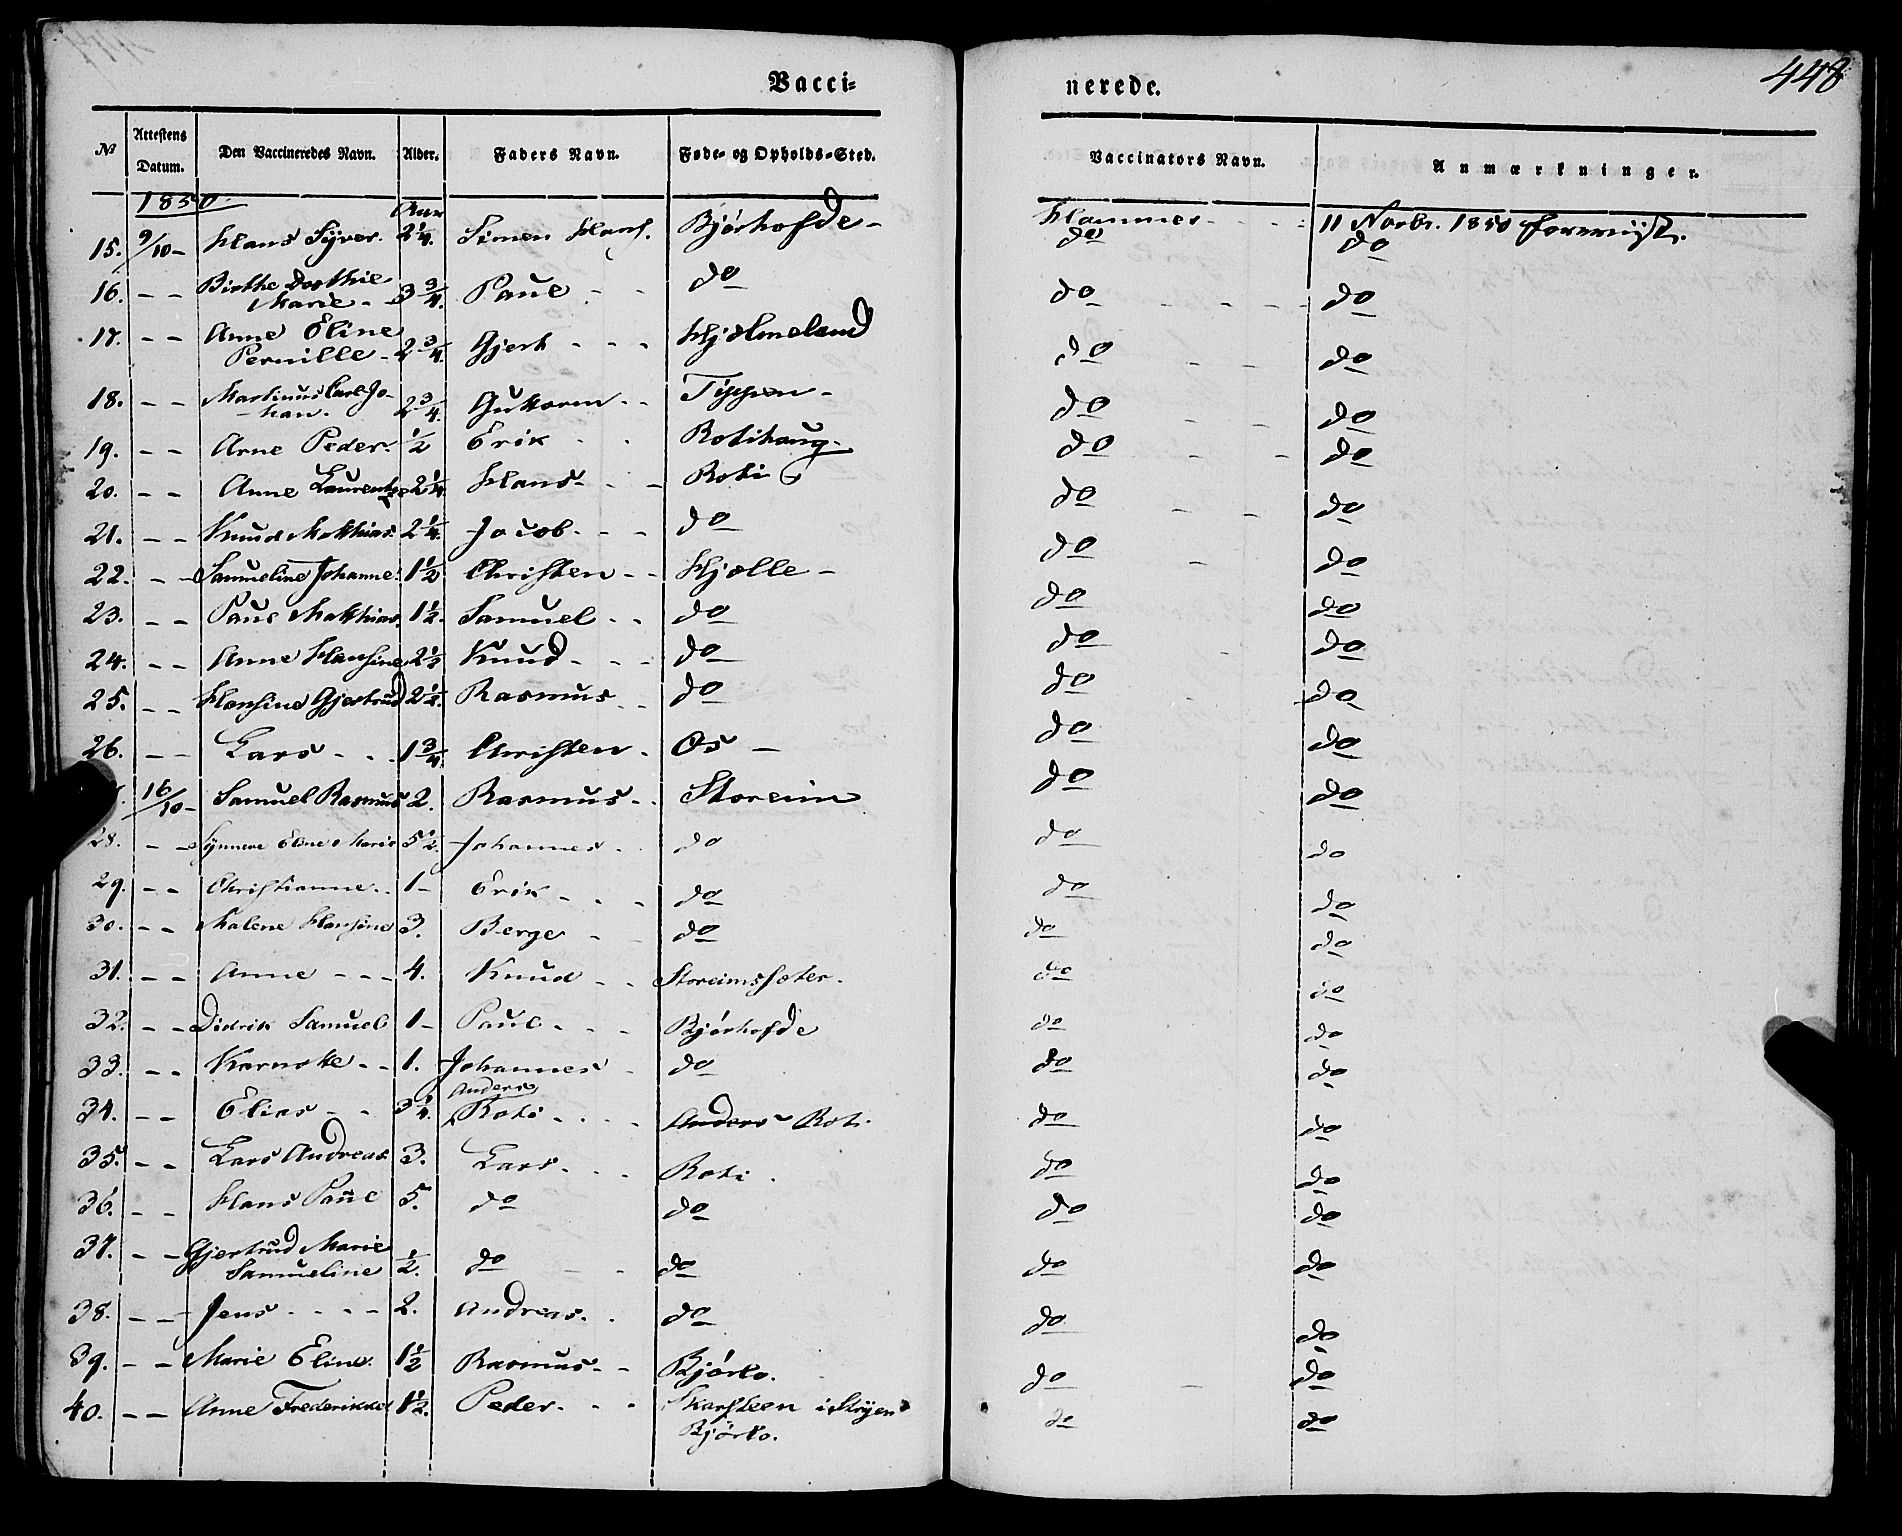 448
Vacci-
nerede.
No
Attestens Datum.
Den Vaccineredes Navn.
Alder.
Faders Navn.
Føde- og Opholds-Sted.
Vaccinators Navn.
Anmærkninger.
1850.
Aar
15. 9/10 - Hans Syver. 2 1/4. Simen Hans. Bjørhofde - Hammer - - - 11 Novbr. 1850 foreviist.
do do
16. - - Birthe Dorthie
Marie - - 3 3/4. Paul - - do do - - - - do
17. - - Anne Eline
Pernille - 2 3/4. Gjert - - - Hjelmeland do - - do
18. - - Martinus Carl Jo-
han. 2 3/4. Guttorm - - Tippen - do - - do
19. - - Arne Peder. 1/2 Erik - - Rotihaug. do - - do
20. - - Anne Laurentze 2 1/4. Hans - - - Roti do - - do
21. - - Knud Matthias. 2 1/4. Jacob - - - do do - do
22. - - Samueline Johanne. 1 1/2 Christen - - Hjelle - do do
23. - - Paul Matthias. 1 1/2. Samuel - - do do do
24. - - Anne Hansine 2 1/2 Knud - - - do do do
25. - - Hansine Gjertrud 2 1/2. Rasmus - - do do do
26. - - Lars - - - 1 3/4. Christen - Os - do do
16/10 - Samuel Rasmus 2. Rasmus - - Storeim do do
28. - - Synneve Eline Marie 5 1/2. Johannes - - do do do
29. - - Christianne - - 1 - Erik - - - do do do
30. - - Malene Hansine 3. Berge - - do do do
31. - - Anne - - - 4. Knud - - Storeimsseter. do do
32. - - Didrik Samuel 1 - Paul - - - Bjørhofde do do
33. - - Karnotte - - 1. Johannes - do do do
Anders
34. - - Elias - - 3 1/4. Roti - - - - Anders Roti. do do
35. - - Lars Andreas 3. Lars - - - Roti. do do
36. - - Hans Paul 5. do do do do
37. - - Gjertrud Marie
Samueline 1/2. do - - do do do
38. - - Jens - - - - 2. Andreas. - do do do
39. - - Marie Eline. 1 1/2 Rasmus - - Bjørlo. do - do
40. - - Anne Frederikke 1 1/2. Peder - - - Skarsteen i Stryen do do
Bjørlo.